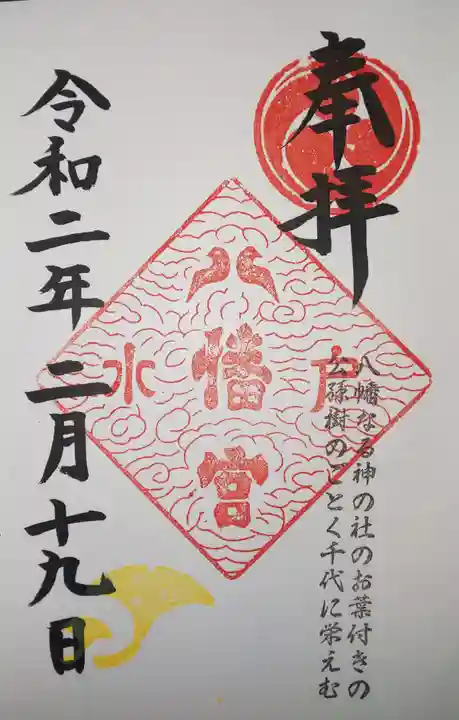 奉拝
八幡なる神の社のお葉付きの
公孫樹のごとく千代に栄えむ
水戸
八幡宮
令和二年 二月十九日